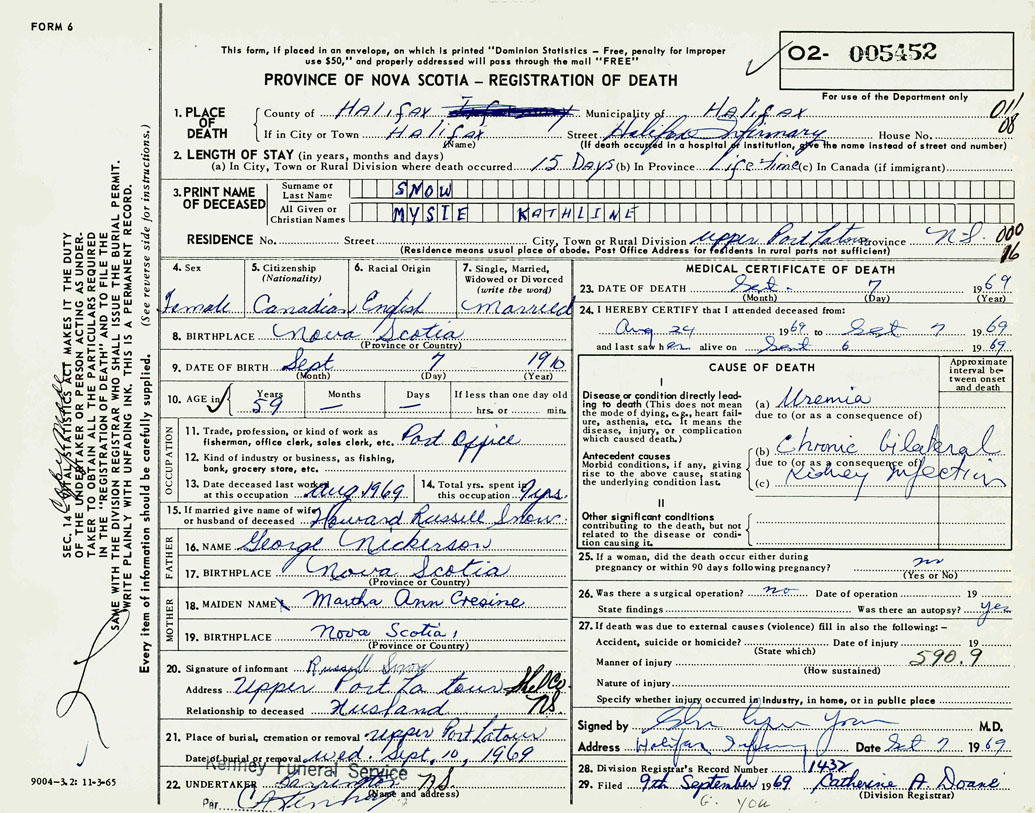 FORM 6
This form, if placed in an envelope, on which is printed "Dominion Statistics – Free, penalty for improper
use $50," and properly addressed will pass through the mail "FREE"
PROVINCE OF NOVA SCOTIA – REGISTRATION OF DEATH
O2- 005452
For use of the Department only
011
08
1. PLACE OF DEATH
County of Halifax Municipality of Halifax
If in City or Town Halifax Street Halifax Infirmary House No.
(Name) (If death occurred in a hospital or institution, give the name instead of street and number)
2. LENGTH OF STAY (in years, months and days)
(a) In City, Town or Rural Division where death occurred 15 Days (b) In Province Life time (c) In Canada (if immigrant)
3. PRINT NAME OF DECEASED
Surname or Last Name SNOW
All Given or Christian Names MYSTE KATHLINE
RESIDENCE No. Street City, Town or Rural Division Upper Port Latour Province N.S. 000
(Residence means usual place of abode. Post Office Address for residents in rural parts not sufficient) 16
4. Sex Female
5. Citizenship (Nationality) Canadian
6. Racial Origin English
7. Single, Married, Widowed or Divorced (write the word) Married
8. BIRTHPLACE Nova Scotia
(Province or Country)
9. DATE OF BIRTH Sept 7 1910
(Month) (Day) (Year)
10. AGE in Years 59 Months — Days — If less than one day old hrs. or min.
OCCUPATION
11. Trade, profession, or kind of work as fisherman, office clerk, sales clerk, etc. Post Office
12. Kind of industry or business, as fishing, bank, grocery store, etc.
13. Date deceased last worked at this occupation Aug 1969
14. Total yrs. spent in this occupation 9 yrs.
15. If married give name of wife or husband of deceased Howard Russell Snow
FATHER
16. NAME George Nickerson
17. BIRTHPLACE Nova Scotia
(Province or Country)
MOTHER
18. MAIDEN NAME Martha Ann Cresine
19. BIRTHPLACE Nova Scotia
(Province or Country)
20. Signature of informant Russell Snow
Address Upper Port La tour Shel Co N.S.
Relationship to deceased Husband
21. Place of burial, cremation or removal Upper Port Latour
Date of burial or removal Wed. Sept. 10, 1969
Kenney Funeral Service
22. UNDERTAKER Barrington N.S.
(Name and address)
Per
MEDICAL CERTIFICATE OF DEATH
23. DATE OF DEATH Set. 7 1969
(Month) (Day) (Year)
24. I HEREBY CERTIFY that I attended deceased from:
Aug 24 1969 to Set 7 1969
and last saw her alive on Sept 6 1969
CAUSE OF DEATH
Approximate interval between onset and death
I
Disease or condition directly leading to death (This does not mean the mode of dying, e.g., heart failure, asthenia, etc. It means the disease, injury, or complication which caused death.)
(a) Uremia
due to (or as a consequence of)
Antecedent causes
Morbid conditions, if any, giving rise to the above cause, stating the underlying condition last.
(b) Chronic bilateral
due to (or as a consequence of)
(c) Kidney Infection
II
Other significant conditions
contributing to the death, but not related to the disease or condition causing it.
25. If a woman, did the death occur either during pregnancy or within 90 days following pregnancy? no
(Yes or No)
26. Was there a surgical operation? no Date of operation 19
State findings Was there an autopsy? yes
27. If death was due to external causes (violence) fill in also the following: –
Accident, suicide or homicide? Date of injury 19
(State which)
590.9
Manner of injury
(How sustained)
Nature of injury
Specify whether injury occurred in industry, in home, or in public place
Signed by M.D.
Address Halifax Infirmary Date Set 7 1969
28. Division Registrar's Record Number 1432
29. Filed 9th September 1969 Catherine A Doane
(Division Registrar)
G. YOU
SEC. 14 VITAL STATISTICS ACT MAKES IT THE DUTY
OF THE UNDERTAKER OR PERSON ACTING AS UNDER-
TAKER TO OBTAIN ALL THE PARTICULARS REQUIRED
IN THE "REGISTRATION OF DEATH" AND TO FILE THE
SAME WITH THE DIVISION REGISTRAR WHO SHALL ISSUE THE BURIAL PERMIT.
WRITE PLAINLY WITH UNFADING INK. THIS IS A PERMANENT RECORD.
Every item of information should be carefully supplied. (See reverse side for instructions.)
9004–3.2: 11-3-65